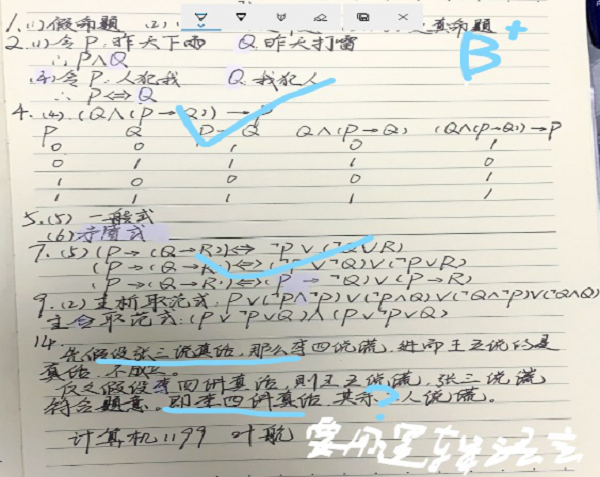 1.(1)假命题 (2) 真命题
2.(1)令P:昨天下雨 Q:昨天打雷
∴P∧Q
(4)令P:人犯我 Q:我犯人
∴ P⇔Q
4.(4).(Q∧(P→Q))→P
P Q P→Q Q∧(P→Q) (Q∧(P→Q))→P
0 0 1 0 1
0 1 1 1
1 0 0 0 1
1 1 1 1 1
5.(5) 一般式
(6)矛盾式
7.(5)(P→(Q→R))⇔¬P∨(¬Q∨R)
(P→(Q→R))⇔(¬P∨¬Q)∨(¬P∨R)
(P→(Q→R))⇔(P→¬Q)∨(P→R)
9.(2)主析取范式:P∨(¬P∧¬P)∨(¬P∧Q)∨(¬Q∧¬P)∨(¬Q∧Q)
主合取范式:(P∨¬P∨Q)∧(P∨¬P∨Q)
14.
先假设张三说真话,那么李四说谎,进而王五说的是
真话,不成立。
仅又假设李四讲真话,则王五说谎,张三说谎
符合题意。即李四讲真话,其余 人说谎。
计算机1199 叶航
B+
?
要用逻辑语言